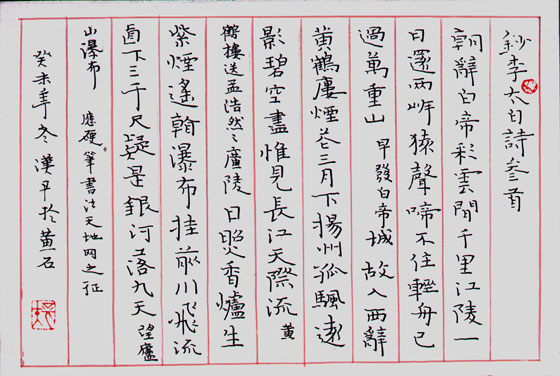 鈔李太白詩叁首
朝辭白帝彩雲間千里江陵一
日還两岸猿聲啼不住輕舟已
過萬重山 早發白帝城 故人西辭
黄鶴樓煙花三月下揚州孤颿遠
影碧空盡惟見長江天際流 黄
鶴樓送孟浩然之廣陵 日照香爐生
紫煙遙看瀑布挂前川飛流
直下三千尺疑是銀河落九天 望廬
山瀑布 應硬筆書法天地网之征
癸未年冬漢平於黄石